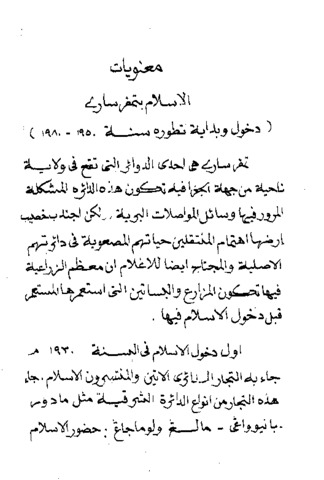 معنويات
الاسلام بتمغرسارے
( دخول وبداية تطوره سنة ١٩٥٠ - ١٩٨٠ )
تمغرسارے هى احدى الدوائر التى تقع فى ولاية
ناحية من جهة الجغرافية تكون هذه الدائره المشكلة
المرور فيها وسائل المواصلات البرية ,, لكن اجتذ بخصيب
ارضها اهتمام المنتقلين حياتهم المصعوبة فى دائرتهم
الاصلية والمجتاج ايضا للاعلام ان معظم الزراعية
فيها تكون المزارع والبساتين التى استعمرها المستعمر
قبل دخول الاسلام فيها .
اول دخول الاسلام فى السنة ١٩٣٠ م
جاء به التجار الـ الاتين والمنتسبرون الاسلام . جاء
هذه التجار من انواع الدائرة الشرقية مثل مادورا
- بانيوواغى - مالـغ ولوماجاغ ؛ حضور الاسلام